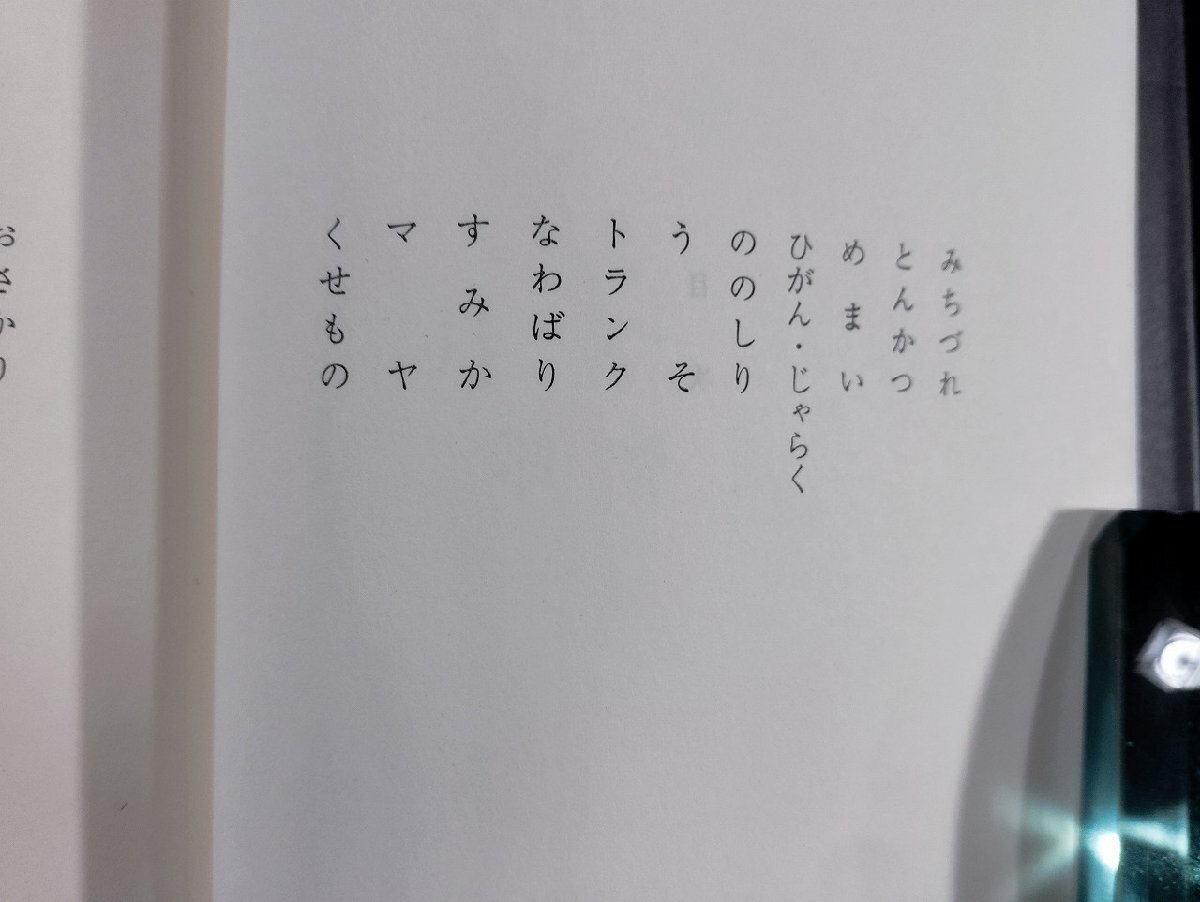 みちづれ
とんかつ
めまい
ひがん・じゃらく
ののしり
うそ
トランク
なわばり
すみか
マヤ
くせもの
おさかり